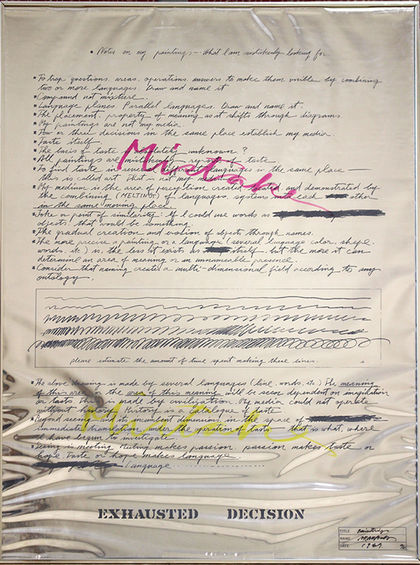 • Notes on my paintings — What I am
• To trap questions, areas, operations answers to make them visible by combining
two or more languages. Draw and name it.
• Compound not mixture
• Language planes. Parallel languages. Draw and name it.
• The placement, property of meaning, as it shifts through diagrams
• My paintings are not my media.
• Two or three decisions in the same place establish my media.
• Taste itself
• The basis of taste unknown?
• All paintings are of taste.
• To find taste in languages in the same place —
this so called not my
• My medium is the area of perception created and demonstrated by
the combining (MELTING) of languages, systems other
in the same moving place.
• Take a point of similarity: If I could use words as
objects that would be something
• The gradual creation and evolution of objects through names.
• The more precise a painting or a language (several language color, shape,
words, etc) is, the less it exists as itself but the more it can
determine an area of meaning or an innumerable presence.
• Consider that naming creates a multi-dimensional field according to my
ontology.
Mistake
please estimate the amount of time spent making these lines.
• The above drawing is made by several languages (line, words, etc) The meaning
of this area or the area of this meaning will be seen dependent on
or taste. is made by My media could not operate
without history. History is a catalogue of taste
• Beyond decision and its concurrent dimension in the space of
immediate translation under the operation of taste that is what, where
I have begun to investigate
• Seeing is melting. Melting makes passion, passion makes taste or
hope. Taste or hope makes language.
language
Mistake
EXHAUSTED DECISION
TITLE
NAME
DATE 1969